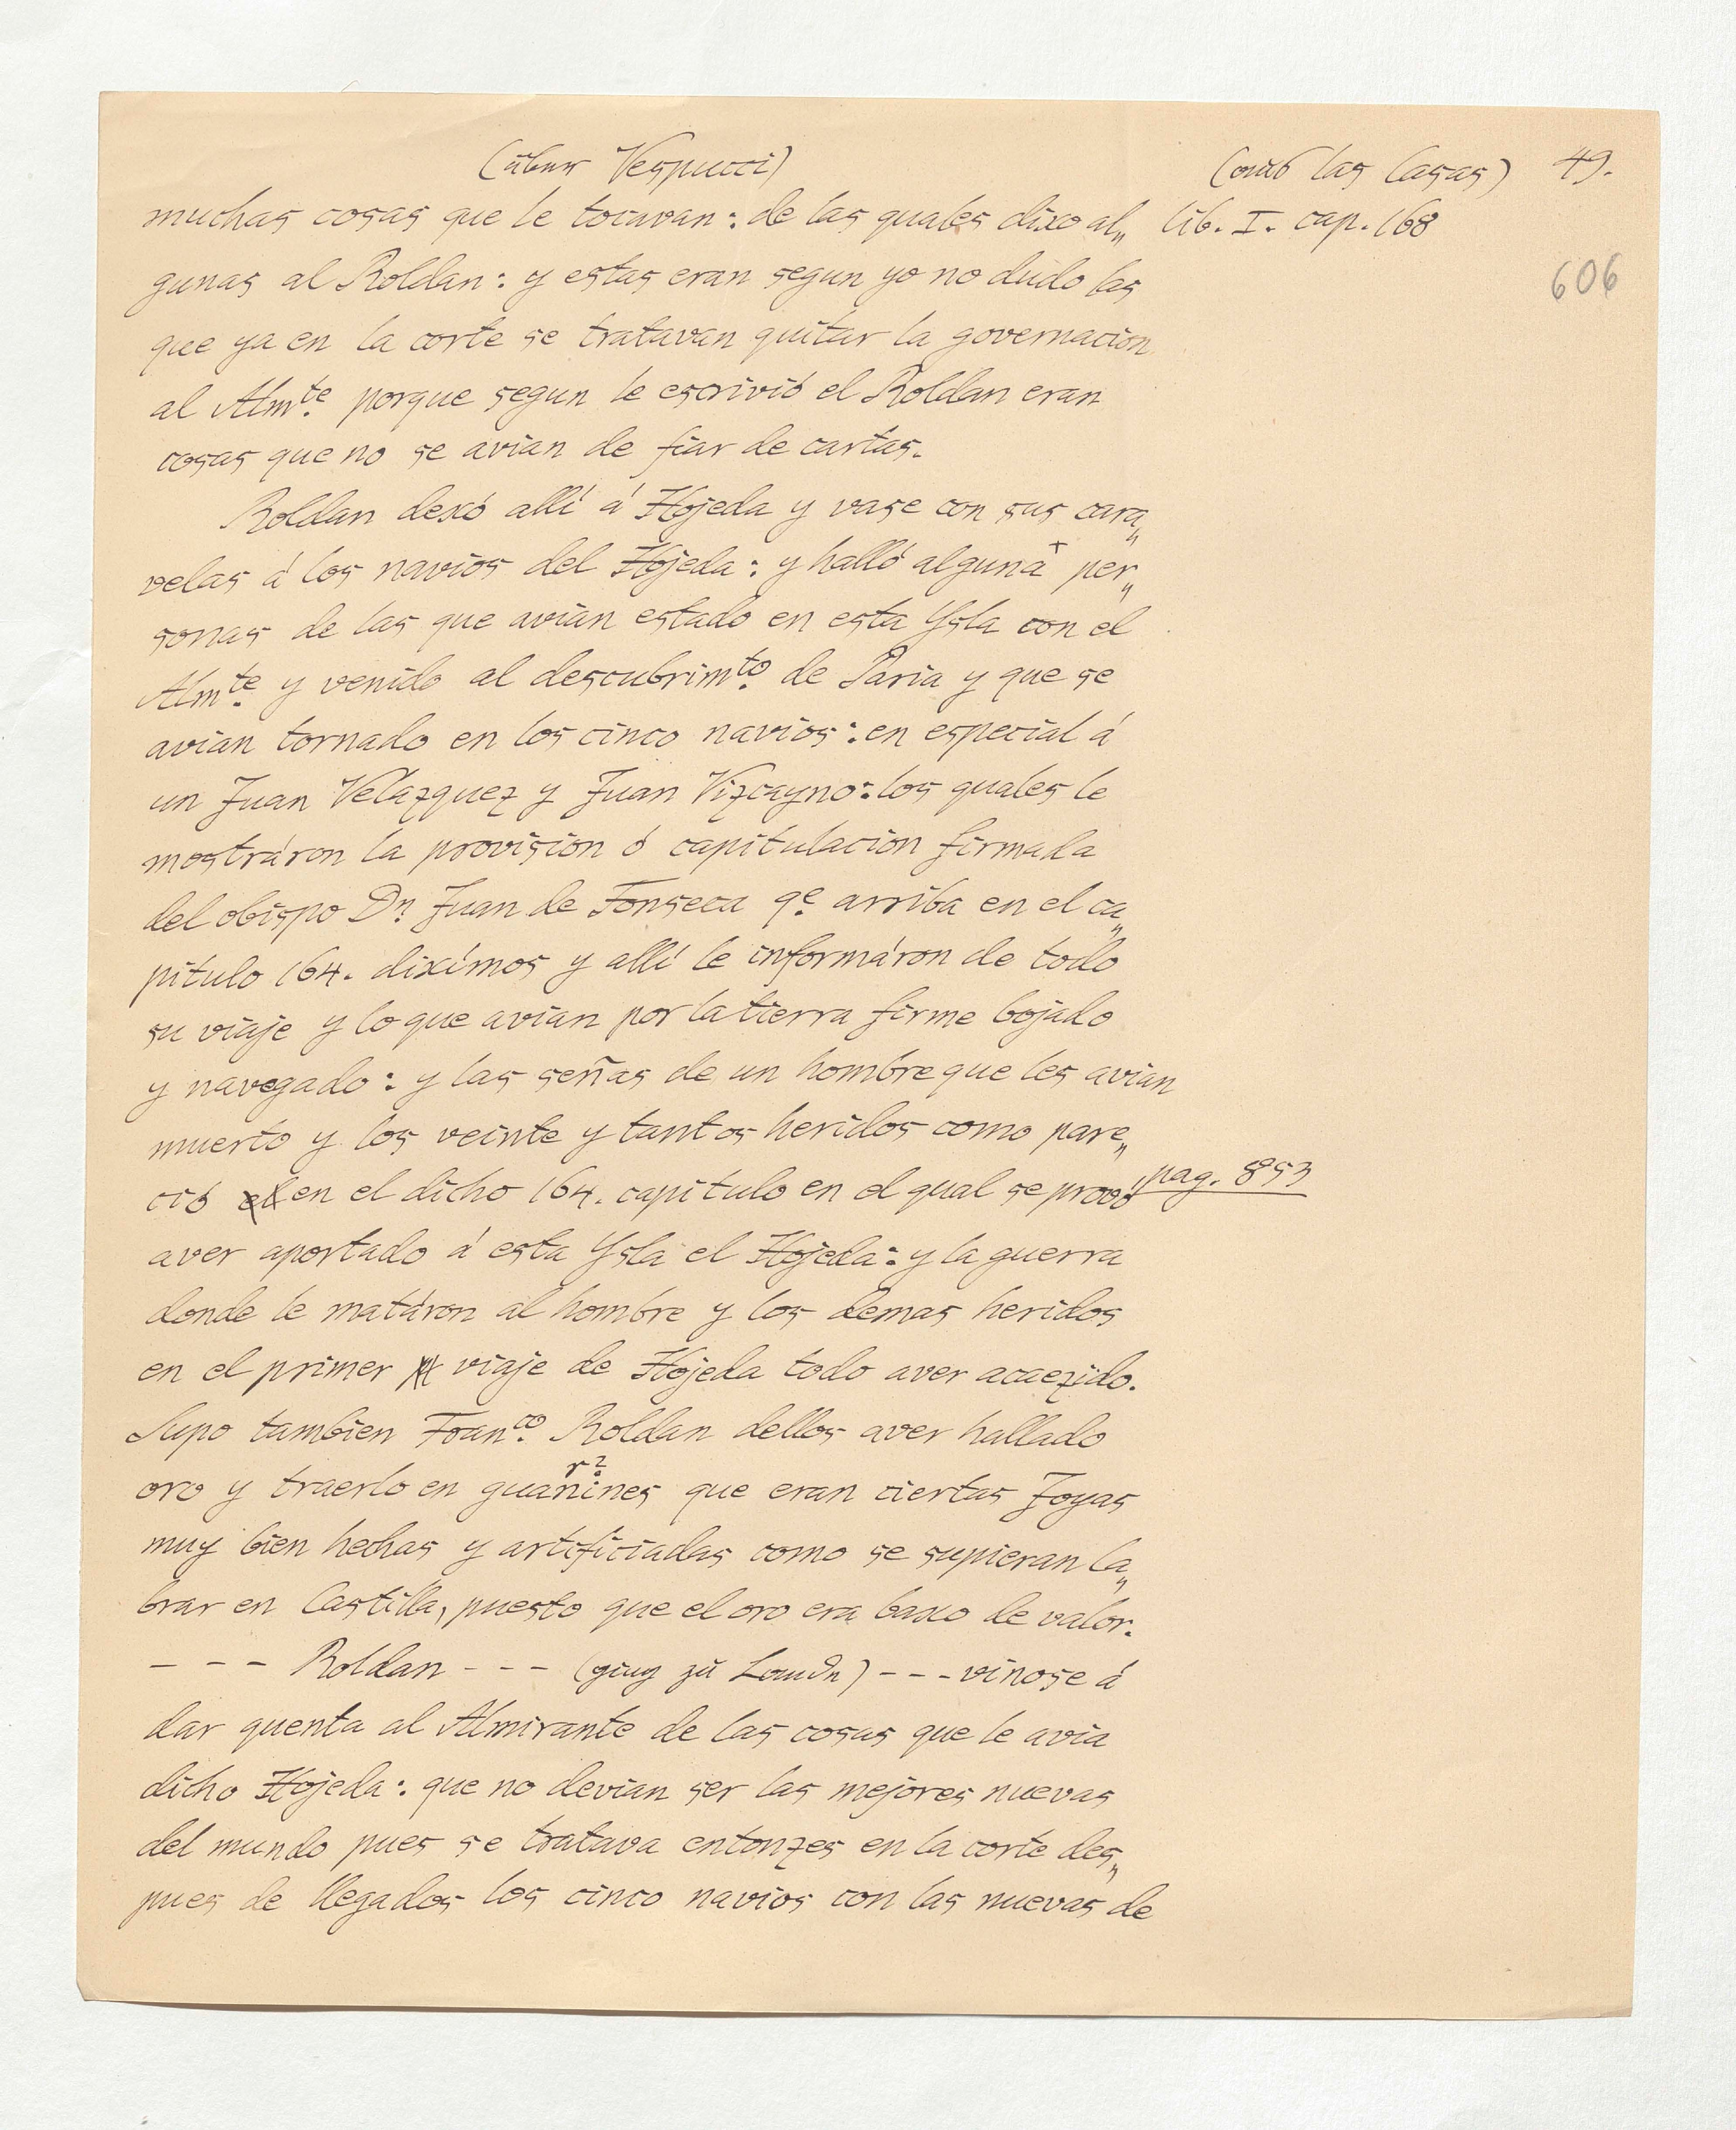 (über Vespucci) (aus las Casas) 49.
muchas cosas que le tocavan: de las quales dixo al„ lib. I. cap. 168
gunas al Roldan: y estas eran segun yo no dudo las
606
que ya en la corte se tratavan quitar la governacion
al Almte. porque segun le escrivió el Roldan eran
cosas que no se avian de fiar de cartas.
Roldan dexó allí á Hojeda y vase con sus cara„
velas á los navios del Hojeda: y halló alguna + per„
sonas de las que avian estado en esta Ysla con el
Almte. y venido al descubrimto. de Paria y que se
avian tornado en los cinco navios: en especial á
un Juan Velazquez y Juan Vizcayno: los quales le
mostráron la provision ó capitulacion firmada
del obispo Dn Juan de Fonseca qe. arriba en el ca„
pitulo 164. diximos y allí le informáron de todo
su viaje y lo que avian por la tierra firme bojado
y navegado: y las señas de un hombre que les avian
muerto y los veinte y tantos heridos como pare„
ció el en el dicho 164. capitulo en el qual se provó pag. 853
aver aportado á esta Ysla el Hojeda: y la guerra
donde le matáron al hombre y los demas heridos
en el primer viaje de Hojeda todo aver acaezido.
Supo tambien Franco. Roldan dellos aver hallado
oro y traerlo en guanines que eran ciertas Joyas
r?
muy bien hechas y artificiadas como se supieran la„
brar en Castilla, puesto que el oro era baxo de valor.
– – – Roldan - - - (ging zu Lande) - - - vinose á
dar quenta al Almirante de las cosas que le avia
dicho Hojeda: que no devian ser las mejores nuevas
del mundo pues se tratava entonzes en la corte des„
pues de llegados los cinco navios con las nuevas de